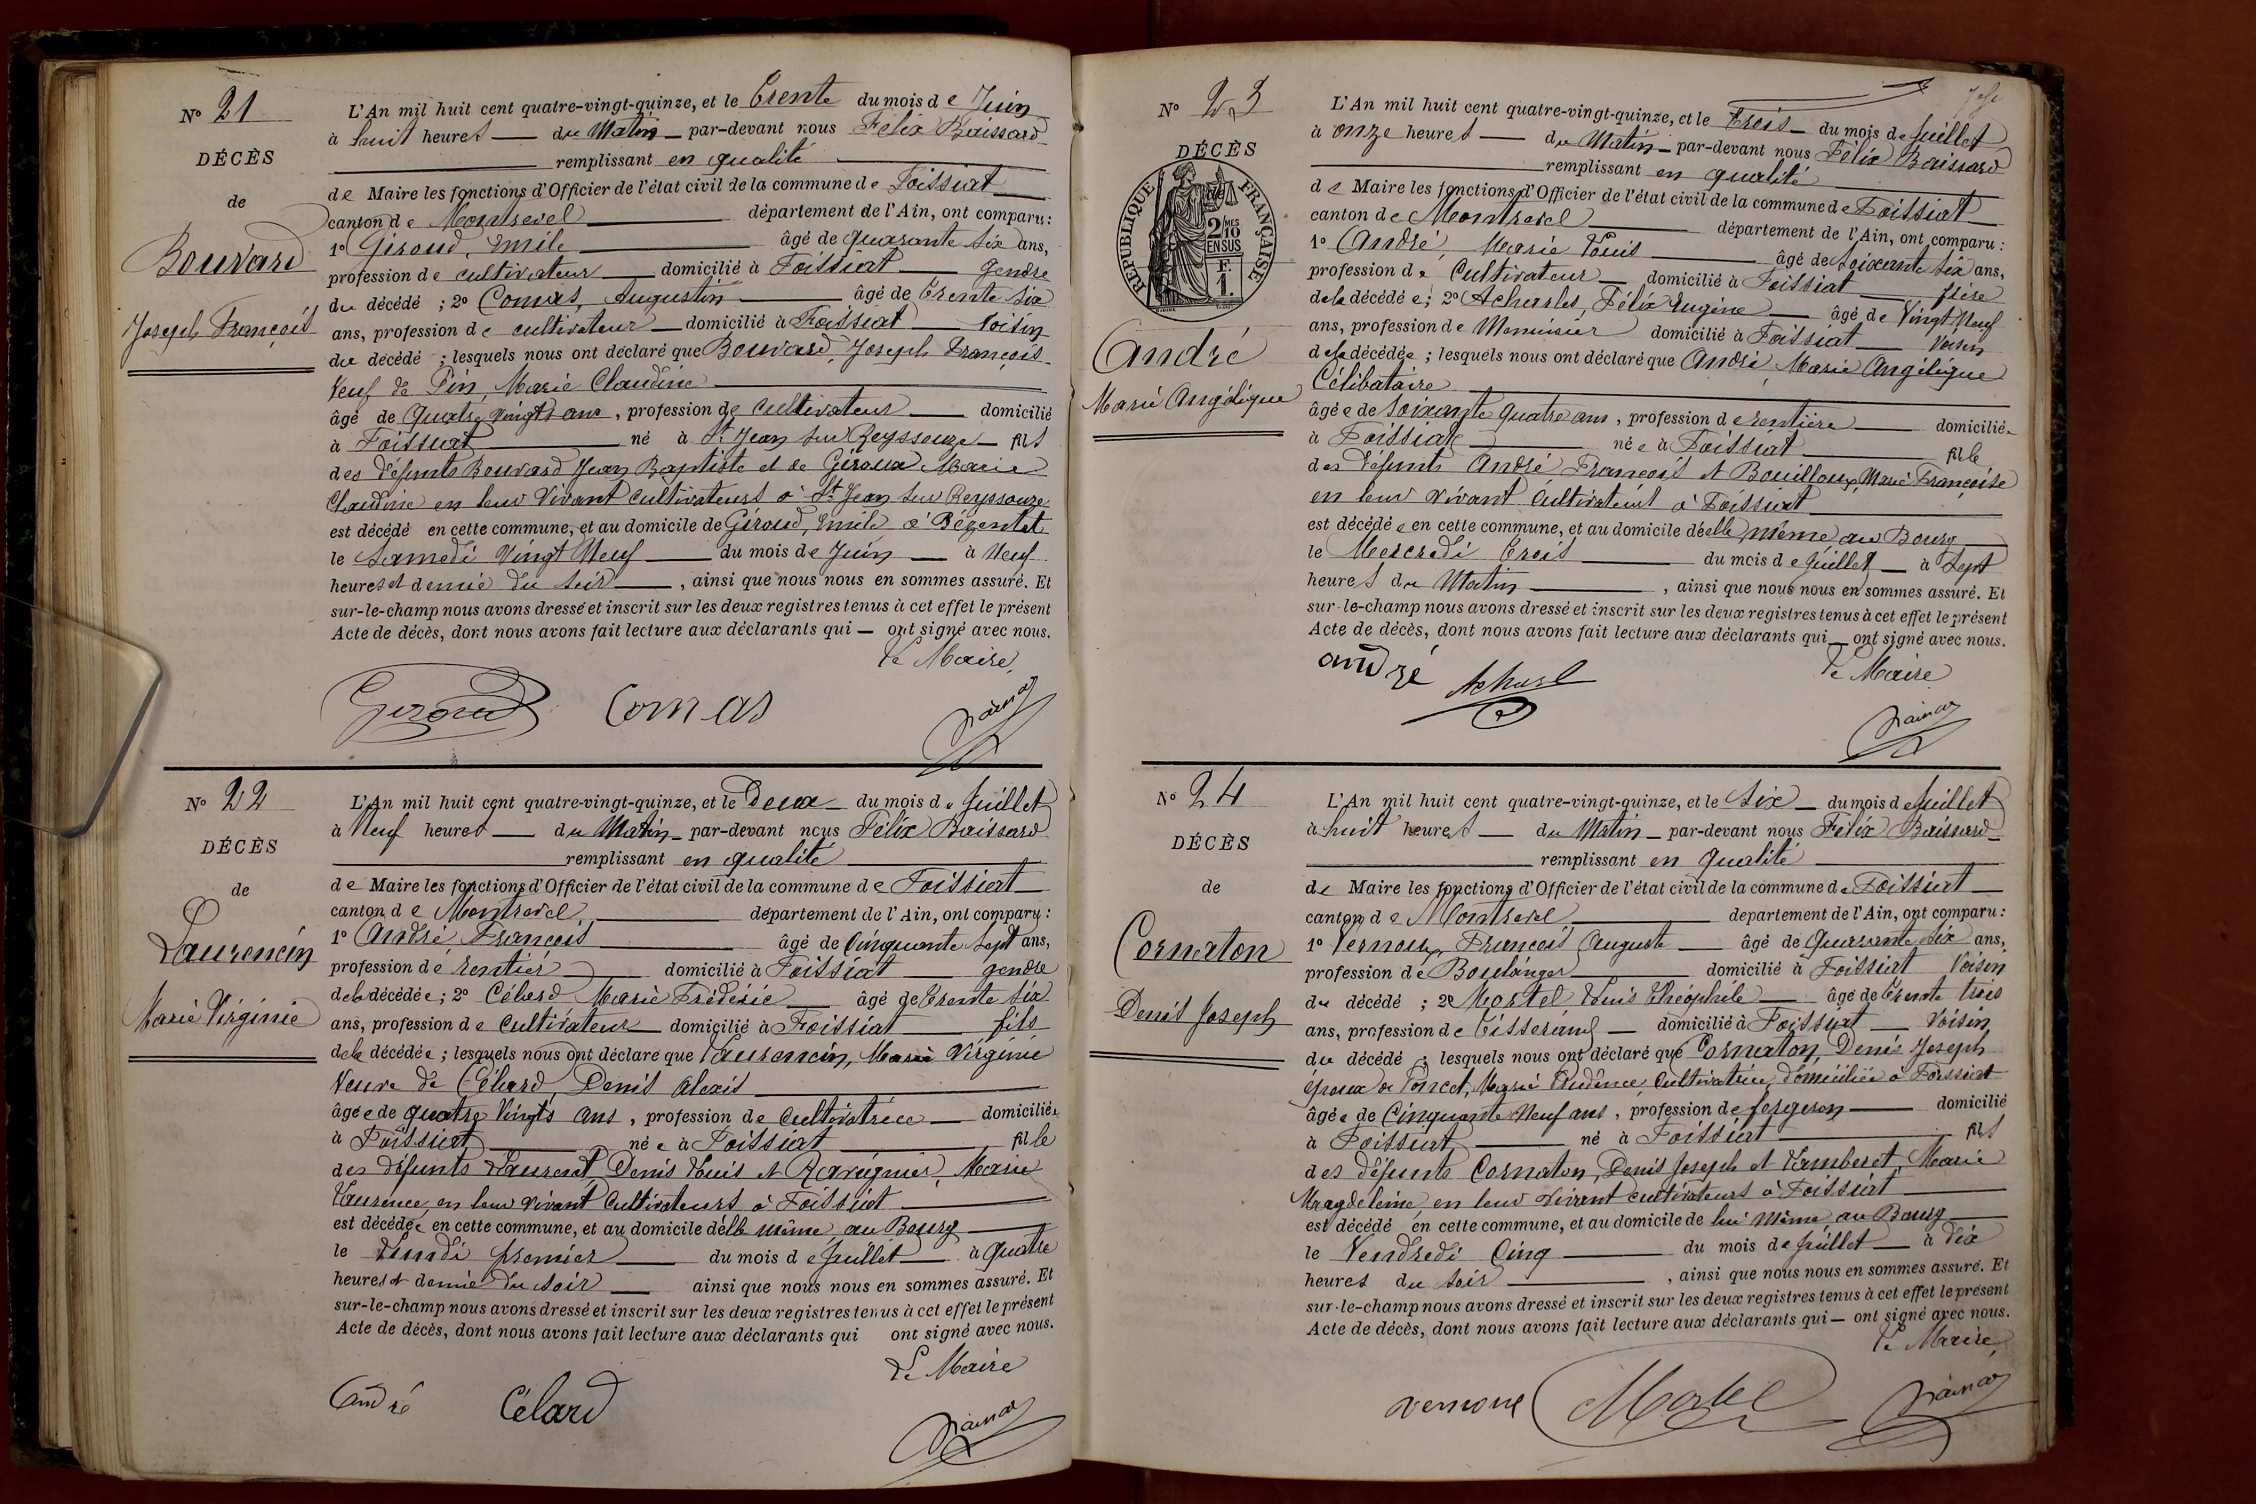 Nº 21
DÉCÈS
de
Bouvard
Joseph François
L'An mil huit cent quatre-vingt-quinze, et le Trente du mois de Juin
à huit heures du Matin par-devant nous Félix Baissard
remplissant en qualité
de Maire les fonctions d'Officier de l'état civil de la commune de Foissiat
canton de Montrevel département de l'Ain, ont comparu :
1º Giroud, Emile âgé de quarante six ans,
profession de cultivateur domicilié à Foissiat gendre
du décédé ; 2º Comas, Augustin âgé de trente six
ans, profession de cultivateur domicilié à Foissiat Voisin
du décédé ; lesquels nous ont déclaré que Bouvard, Joseph François
Veuf de Pin, Marie Claudine
âgé de quatre vingts ans, profession de cultivateur domicilié
à Foissiat né à St Jean sur Reyssouze fils
des défunts Bouvard Jean Baptiste et de Giroux Marie
Claudine en leur vivant cultivateurs à St Jean sur Reyssouze
est décédé en cette commune, et au domicile de Giroud, Emile à Bézentet
le Samedi Vingt Neuf du mois de Juin à Neuf
heures et demie du soir, ainsi que nous nous en sommes assuré. Et
sur-le-champ nous avons dressé et inscrit sur les deux registres tenus à cet effet le présent
Acte de décès, dont nous avons fait lecture aux déclarants qui — ont signé avec nous.
Le Maire,
Giroud Comas
Nº 22
DÉCÈS
de
Laurencin
Marie Virginie
L'An mil huit cent quatre-vingt-quinze, et le Deux du mois de Juillet
à Neuf heures du Matin par-devant nous Félix Baissard
remplissant en qualité
de Maire les fonctions d'Officier de l'état civil de la commune de Foissiat
canton de Montrevel département de l'Ain, ont comparu :
1º André François âgé de Cinquante Sept ans,
profession de rentier domicilié à Foissiat gendre
de la décédée ; 2º Célard Marie Frédéric âgé de trente six
ans, profession de Cultivateur domicilié à Foissiat fils
de la décédée ; lesquels nous ont déclaré que Laurencin, Marie Virginie
Veuve de Célard, Denis Alexis
âgée de quatre Vingts ans, profession de Cultivatrice domiciliée
à Foissiat née à Foissiat fille
des défunts Denis Louis et Marie
Laurence, en leur vivant Cultivateurs à Foissiat
est décédée en cette commune, et au domicile d'elle même au Bourg
le Lundi premier du mois de Juillet à quatre
heures et demie du soir ainsi que nous nous en sommes assuré. Et
sur-le-champ nous avons dressé et inscrit sur les deux registres tenus à cet effet le présent
Acte de décès, dont nous avons fait lecture aux déclarants qui ont signé avec nous.
Le Maire
André Célard
Nº 23
DÉCÈS
de
RÉPUBLIQUE FRANÇAISE
2/10
EN SUS
F.
1.
André
Marie Angélique
L'An mil huit cent quatre-vingt-quinze, et le Trois du mois de Juillet
à onze heures du Matin par-devant nous Félix Baissard
remplissant en qualité
de Maire les fonctions d'Officier de l'état civil de la commune de Foissiat
canton de Montrevel département de l'Ain, ont comparu :
1º André, Marie Louis âgé de soixante six ans,
profession de Cultivateur domicilié à Foissiat frère
de la décédée ; 2º Acharles, Félix Eugène âgé de Vingt Neuf
ans, profession de Menuisier domicilié à Foissiat Voisin
de la décédée ; lesquels nous ont déclaré que André, Marie Angélique
Célibataire
âgée de soixante quatre ans, profession de rentière domiciliée
à Foissiat née à Foissiat fille
des défunts André François et Bouilloux, Marie Françoise
en leur vivant Cultivateurs à Foissiat
est décédée en cette commune, et au domicile d'elle même au Bourg
le Mercredi trois du mois de Juillet à Sept
heures du Matin, ainsi que nous nous en sommes assuré. Et
sur-le-champ nous avons dressé et inscrit sur les deux registres tenus à cet effet le présent
Acte de décès, dont nous avons fait lecture aux déclarants qui — ont signé avec nous.
Le Maire
André
Nº 24
DÉCÈS
de
Cornaton
Denis Joseph
L'An mil huit cent quatre-vingt-quinze, et le Six du mois de Juillet
à huit heures du Matin par-devant nous Félix Baissard
remplissant en qualité
de Maire les fonctions d'Officier de l'état civil de la commune de Foissiat
canton de Montrevel département de l'Ain, ont comparu :
1º Vernoux, François Auguste âgé de quarante six ans,
profession de Boulanger domicilié à Foissiat Voisin
du décédé ; 2º Mortel Louis Théophile âgé de trente trois
ans, profession de Tisserand domicilié à Foissiat Voisin
du décédé ; lesquels nous ont déclaré que Cornaton, Denis Joseph
époux de Poncet, Marie Prudence Cultivatrice, domiciliée à Foissiat
âgé de Cinquante Neuf ans, profession de forgeron domicilié
à Foissiat né à Foissiat fils
des défunts Cornaton, Denis Joseph et Lamberet, Marie
Magdeleine, en leur vivant cultivateurs à Foissiat
est décédé en cette commune, et au domicile de lui même au Bourg
le Vendredi Cinq du mois de Juillet à dix
heures du soir, ainsi que nous nous en sommes assuré. Et
sur-le-champ nous avons dressé et inscrit sur les deux registres tenus à cet effet le présent
Acte de décès, dont nous avons fait lecture aux déclarants qui — ont signé avec nous.
Le Maire,
Vernoux Mortel